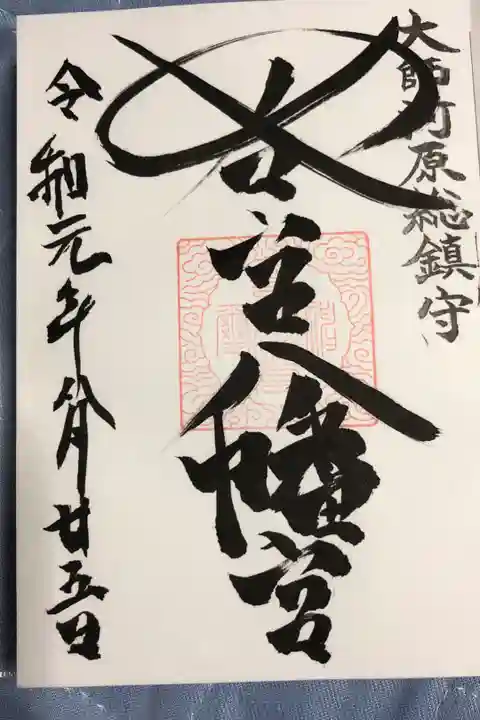 大師河原総鎮守
若宮八幡宮
令和元年八月廿五日